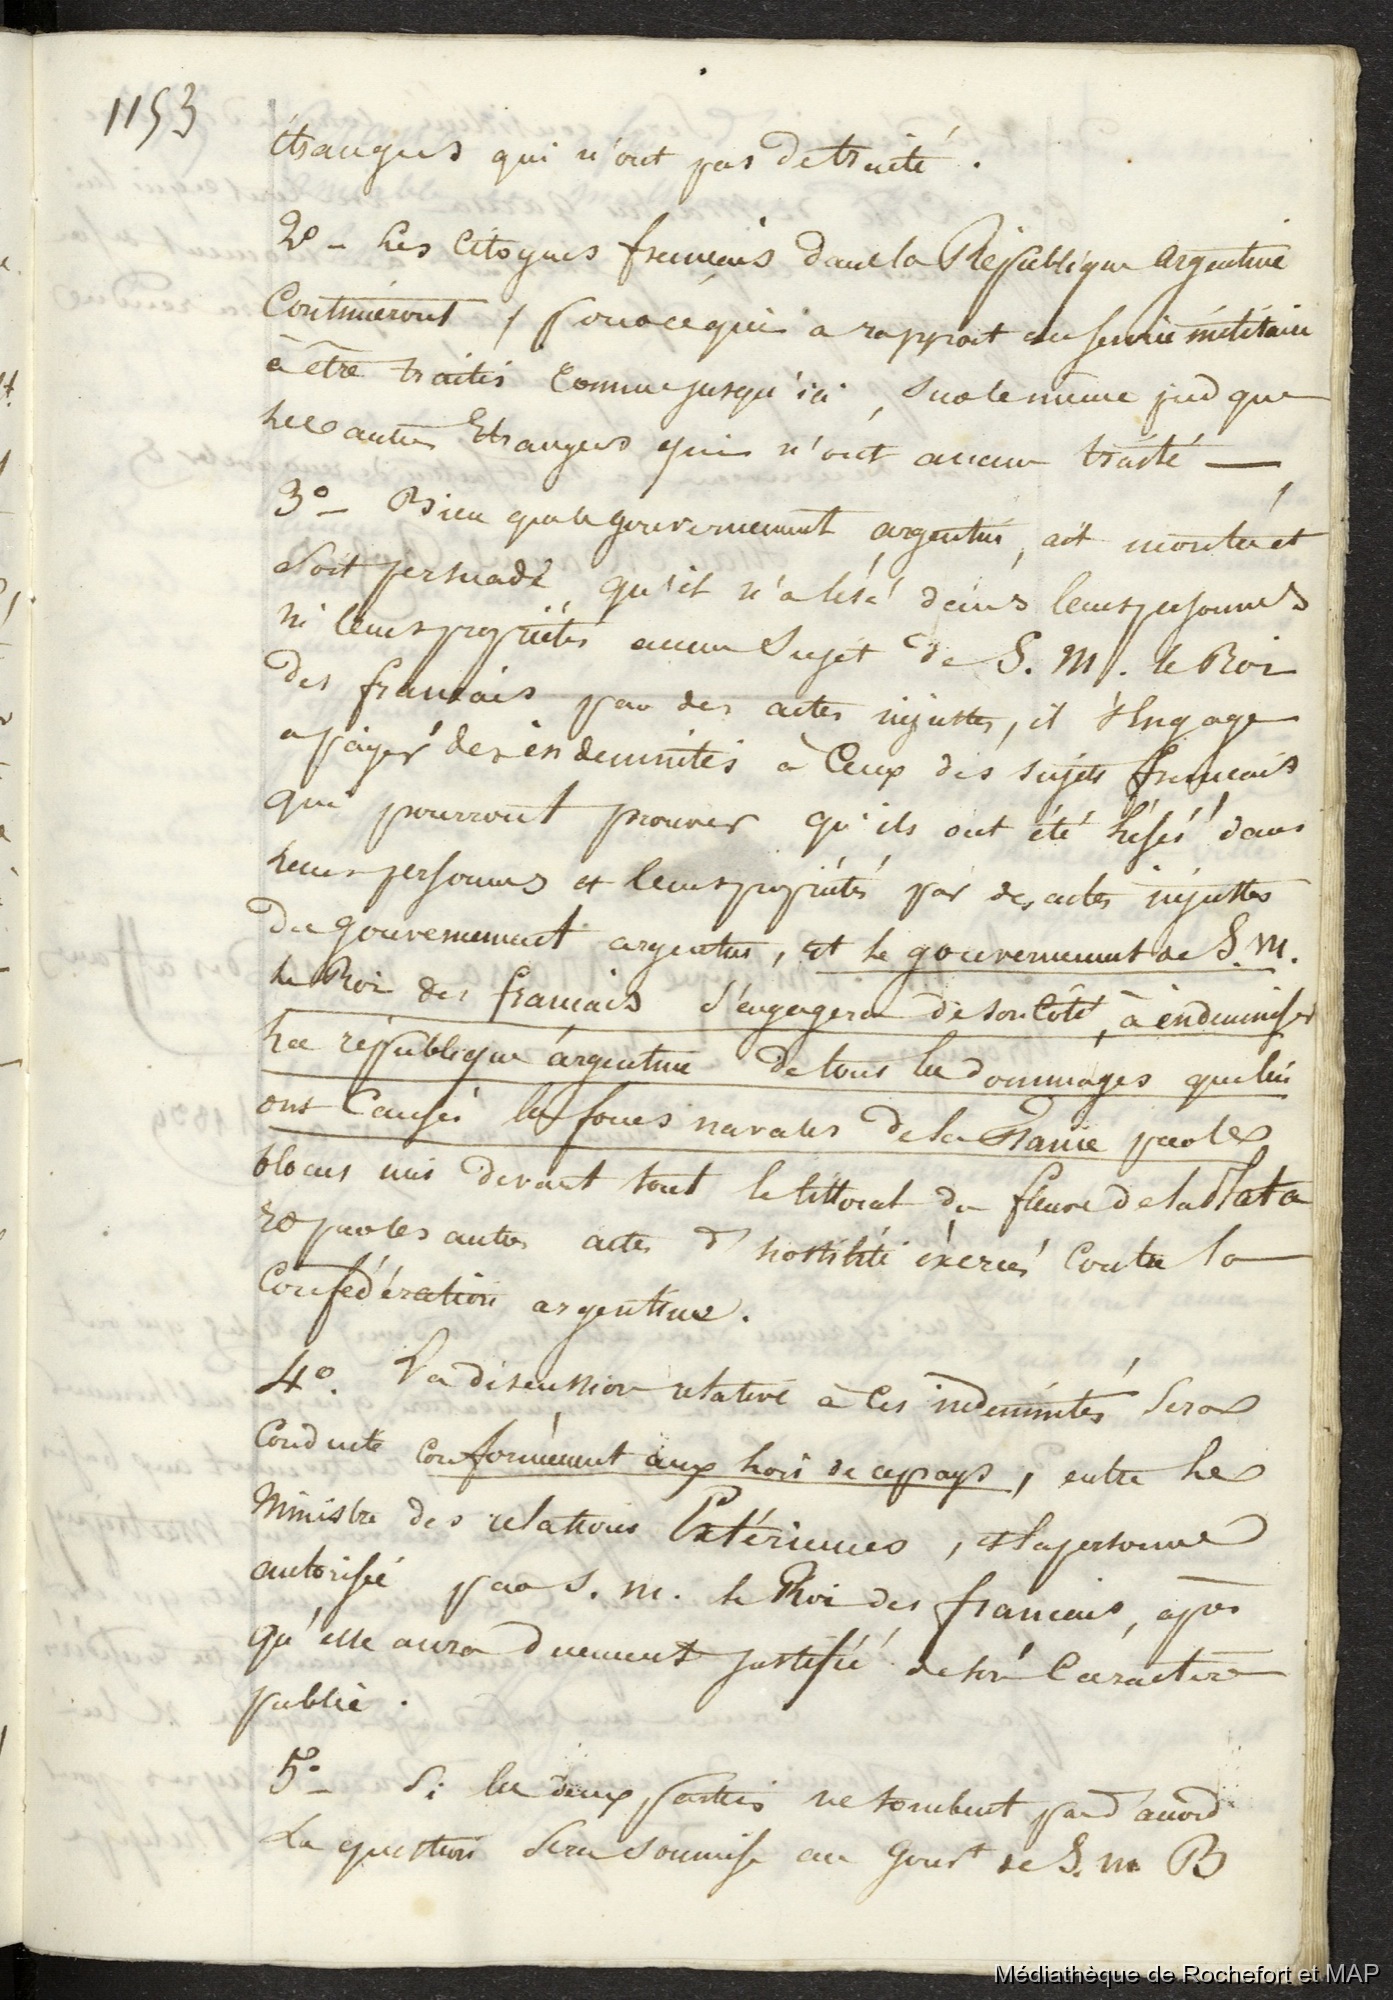 1153
étrangers qui n'ont pas de traité.
2º - Les Citoyens français dans la République argentine
Continueront, pour ce qui a rapport au service militaire
à être traités comme jusqu'ici, sur le même pied que
les autres Etrangers qui n'ont aucun traité —
3º - Bien que le gouvernement argentin, ait montré et
soit persuadé qu'il n'a lésé dans leurs personnes
ni leurs propriétés aucun Sujet de S. M. le Roi
des français par des actes injustes, il s'Engage
a payer des indemnités à Ceux des sujets français
qui pourront prouver qu'ils ont été lésés dans
leurs personnes et leurs propriétés par des actes injustes
du gouvernement argentin, et le gouvernement de S. M.
le Roi des français s'engagera de son Côté, à indemniser
La république argentine de tous les dommages que lui
ont Causés les forces navales de la France par le
blocus mis devant tout le littoral du fleuve de la Plata
et par les autres actes d'hostilité éxercés Contre la
Confédération argentine.
4º. La discussion relative à Ces indemnités sera
Conduite conformément aux lois de ce pays, entre le
Ministre des relations Extérieures, et la personne
autorisée par S. M. le Roi des français, après
qu'elle aura duement justifié de son Caractère
public.
5º - Si les deux parties ne tombent pas d'accord
La question sera soumise au Gouvt de S. M B
Médiathèque de Rochefort et MAP